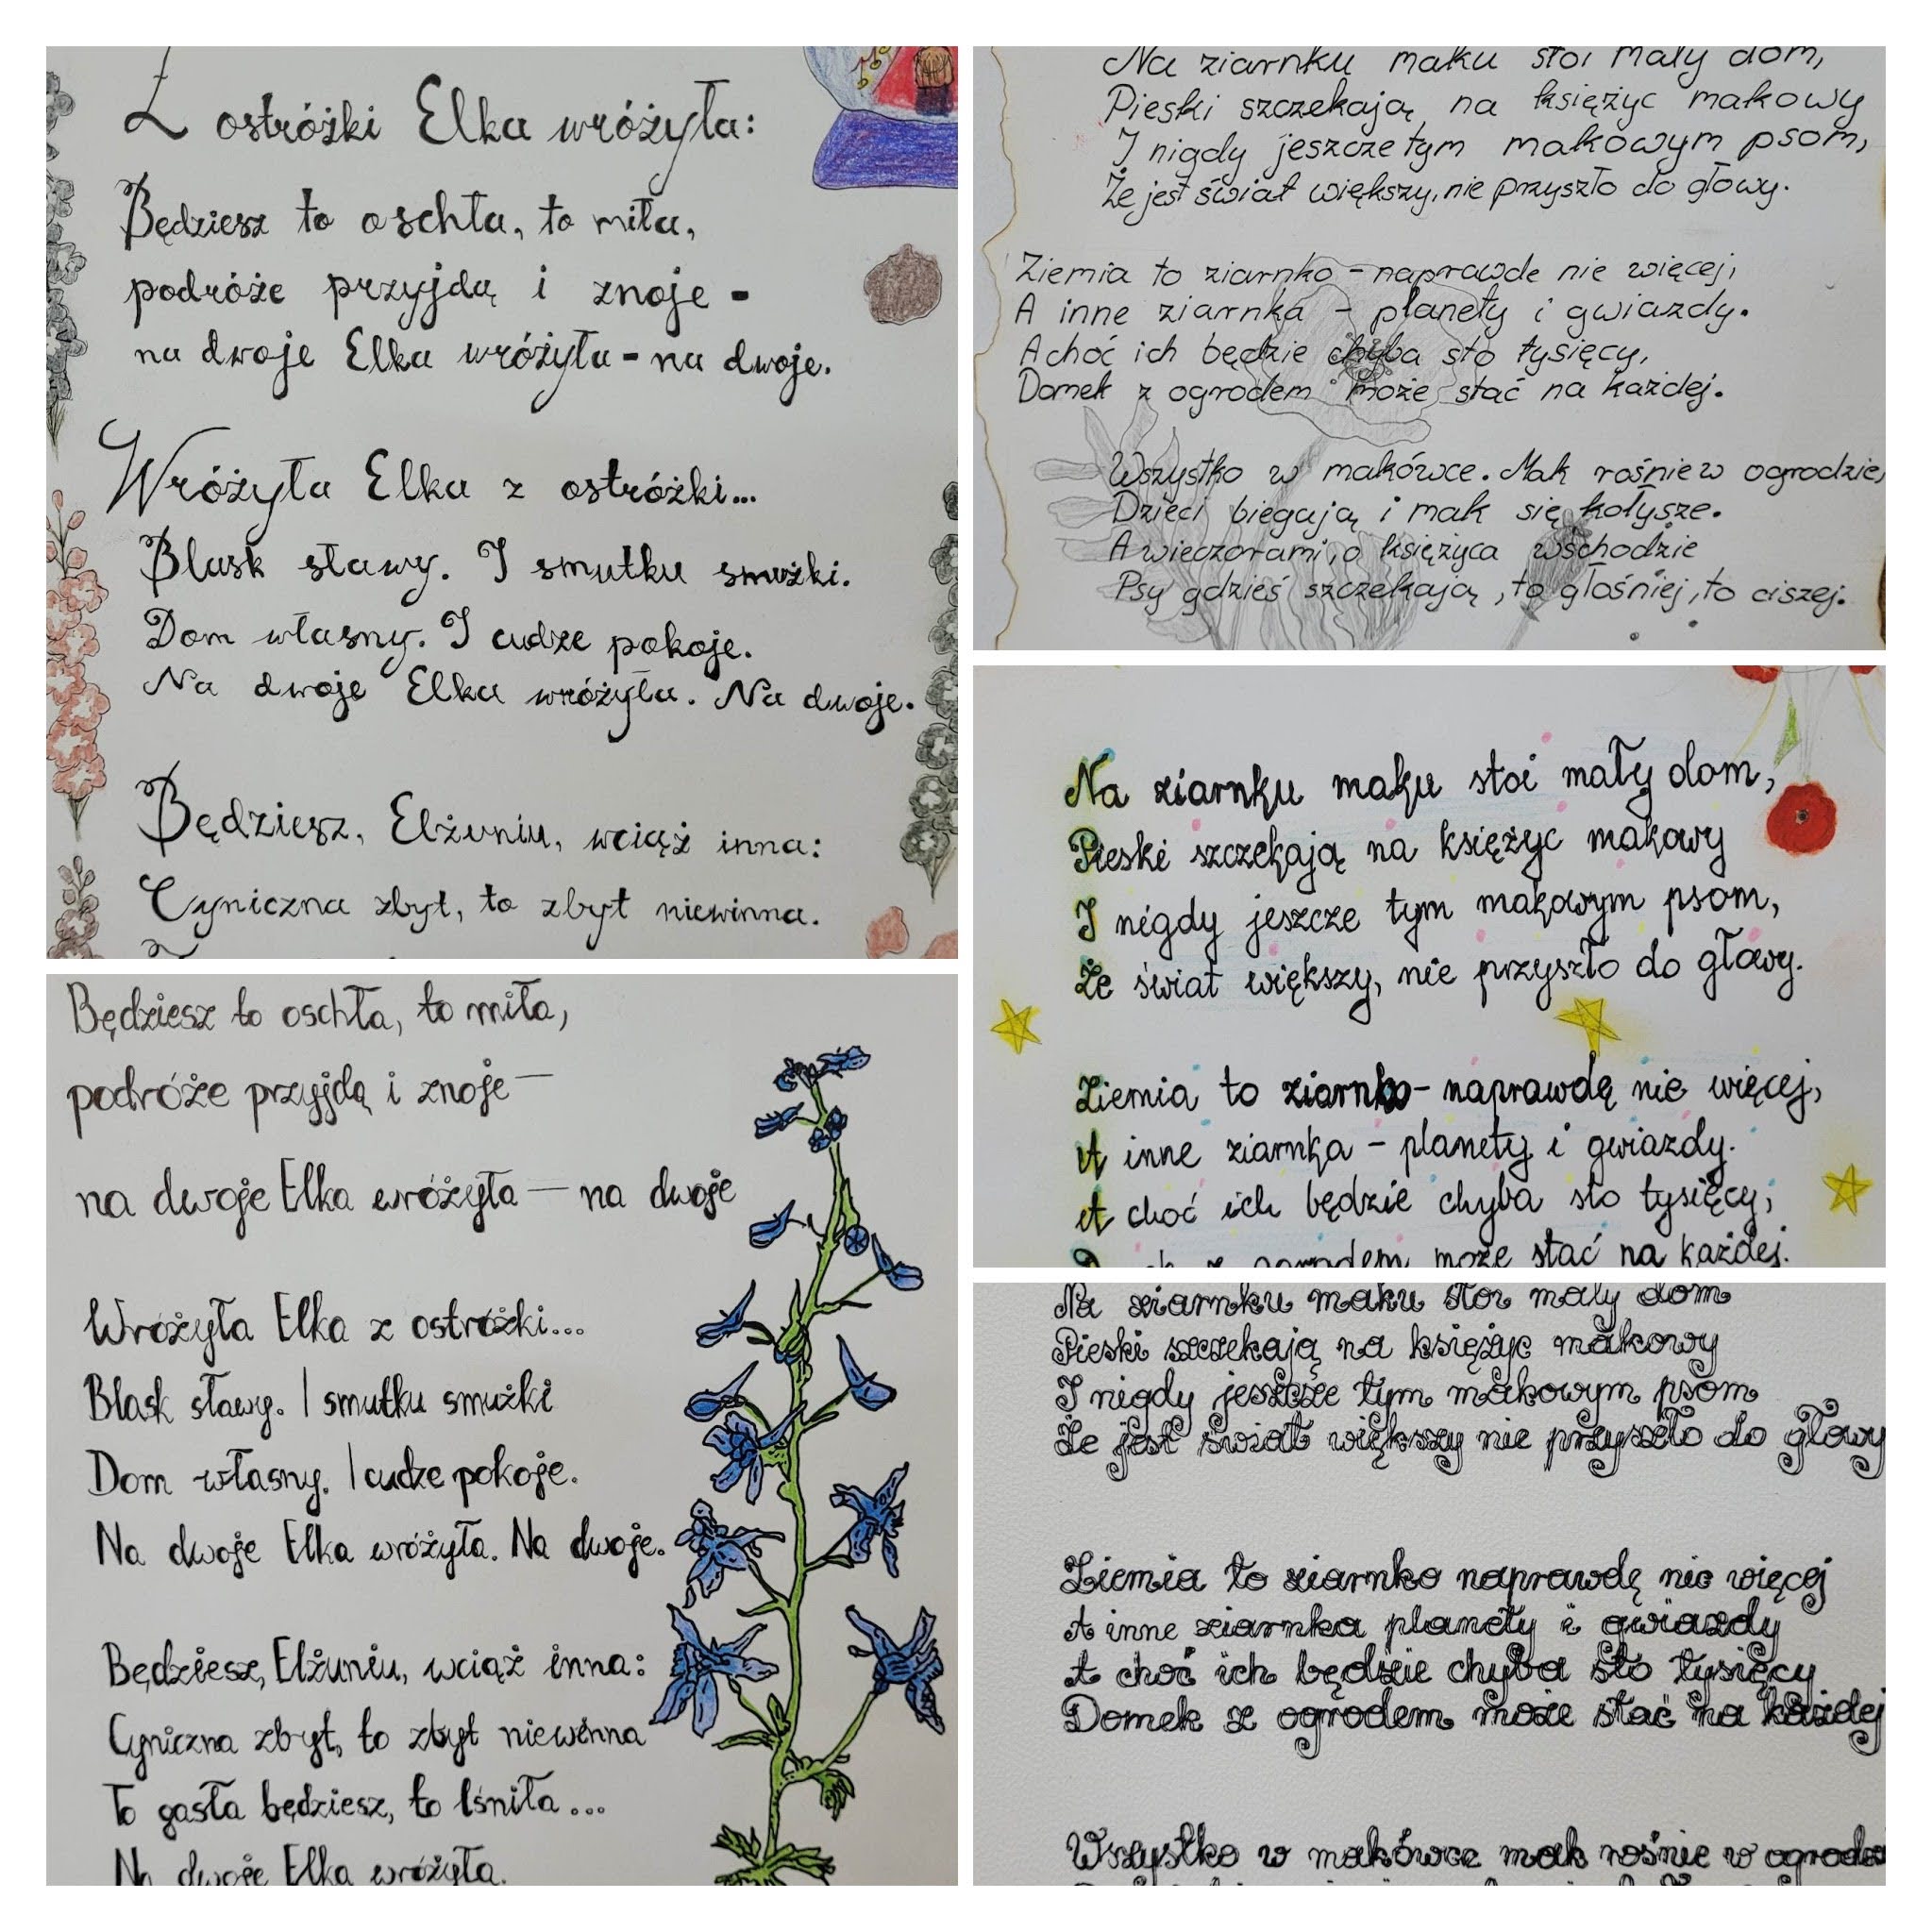 Z ostróżki Elka wróżyła:
Będziesz to oschła, to miła,
podróże przyjdą i znoje -
na dwoje Elka wróżyła - na dwoje.
Wróżyła Elka z ostróżki...
Blask sławy. I smutku smużki.
Dom własny. I cudze pokoje.
Na dwoje Elka wróżyła. Na dwoje.
Będziesz, Elżuniu, wciąż inna:
Cyniczna zbyt, to zbyt niewinna.
Będziesz to oschła, to miła,
podróże przyjdą i znoje —
na dwoje Elka wróżyła — na dwoje
Wróżyła Elka z ostróżki...
Blask sławy. I smutku smużki
Dom własny. I cudze pokoje.
Na dwoje Elka wróżyła. Na dwoje.
Będziesz, Elżuniu, wciąż inna:
Cyniczna zbyt, to zbyt niewinna
To gasła będziesz, to lśniła...
Na dwoje Elka wróżyła.
Na ziarnku maku stoi mały dom,
Pieski szczekają na księżyc makowy
I nigdy jeszcze tym makowym psom,
Że jest świat większy, nie przyszło do głowy.
Ziemia to ziarnko - naprawde nie więcej,
A inne ziarnka - planety i gwiazdy.
A choć ich będzie chyba sto tysięcy,
Domek z ogrodem może stać na każdej.
Wszystko w makówce. Mak rośnie w ogrodzie,
Dzieci biegają i mak się kołysze.
A wieczorami, o księżyca wschodzie
Psy gdzieś szczekają, to głośniej, to ciszej.
Na ziarnku maku stoi mały dom,
Pieski szczekają na księżyc makowy
I nigdy jeszcze tym makowym psom,
Że świat większy, nie przyszło do głowy.
Ziemia to ziarnko - naprawdę nie więcej,
A inne ziarnka - planety i gwiazdy.
A choć ich będzie chyba sto tysięcy,
z ogrodem może stać na każdej.
Na ziarnku maku stoi mały dom
Pieski szczekają na księżyc makowy
I nigdy jeszcze tym makowym psom
Że jest świat większy nie przyszło do głowy
Ziemia to ziarnko naprawdę nie więcej
A inne ziarnka planety i gwiazdy
A choć ich będzie chyba sto tysięcy
Domek z ogrodem może stać na każdej
Wszystko w makówce mak rośnie w